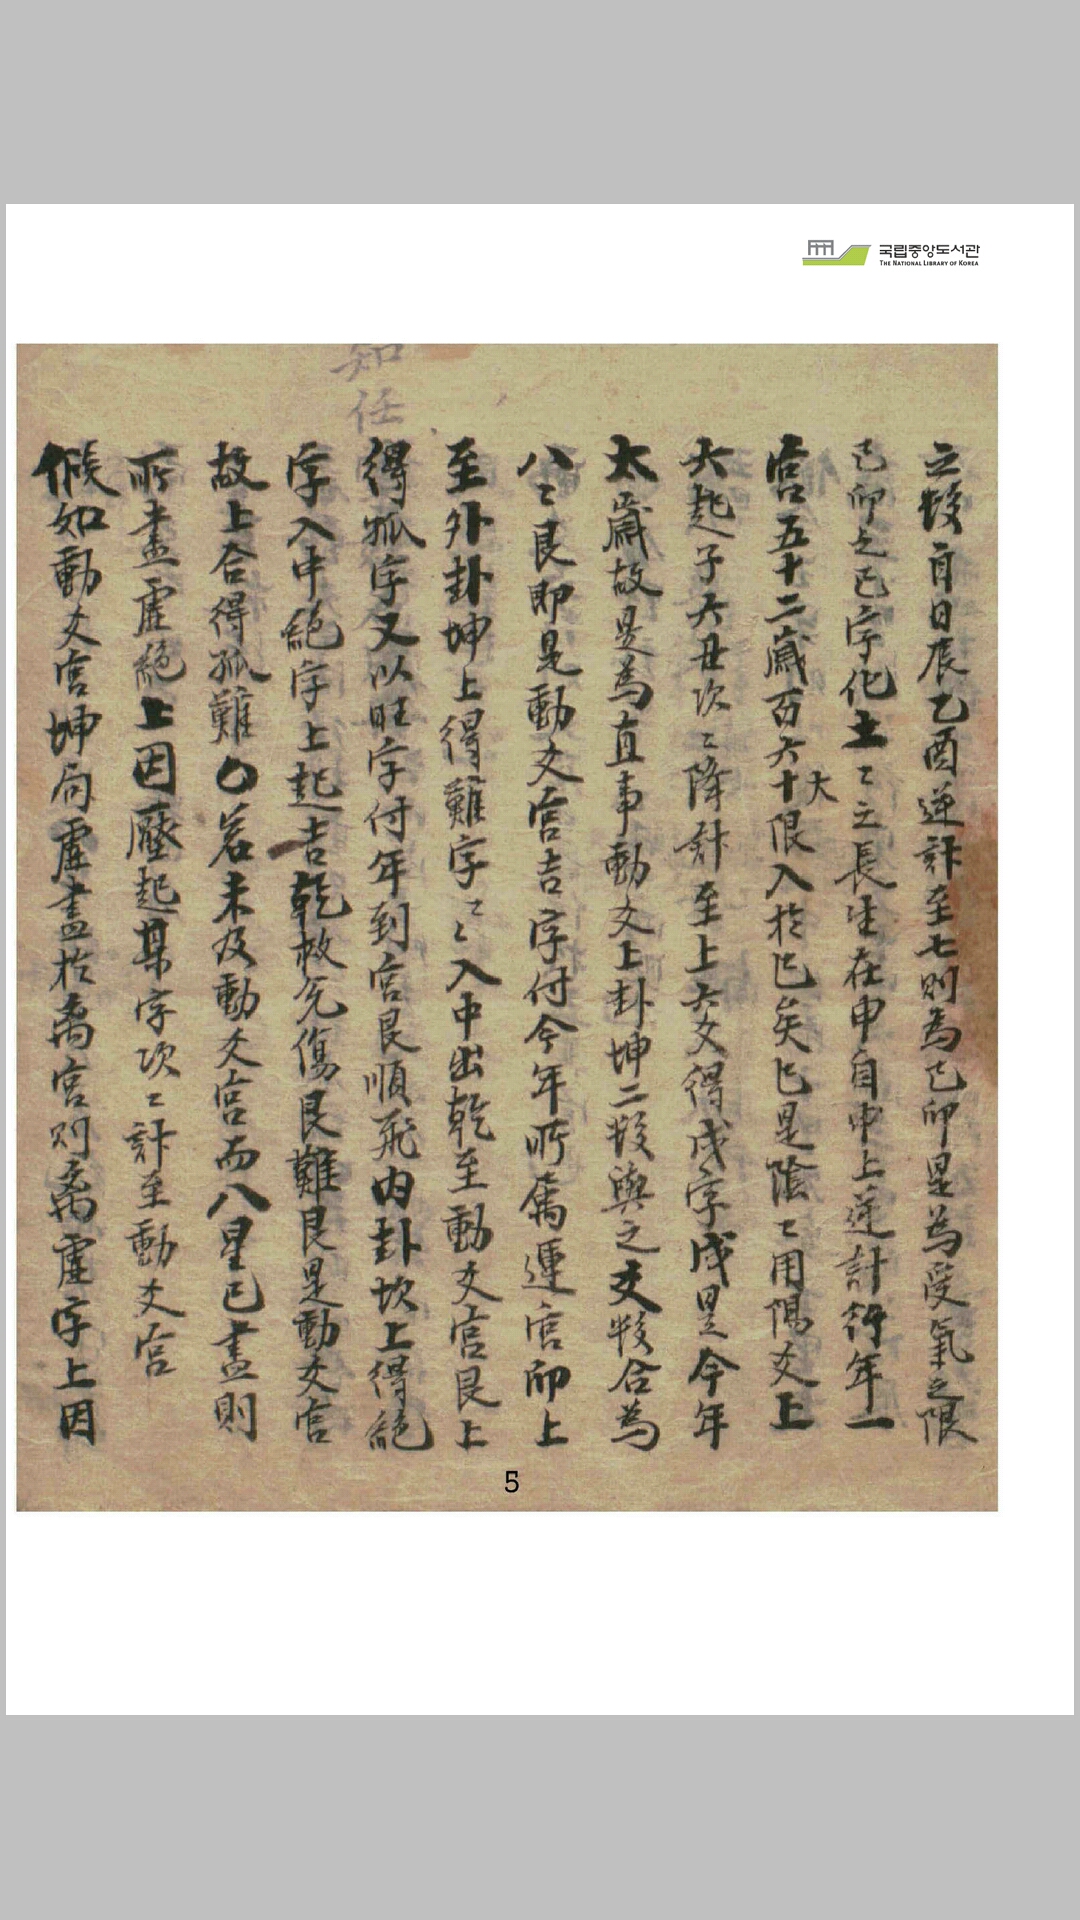 국립중앙도서관
THE NATIONAL LIBRARY OF KOREA
知任
之數自日辰乙酉逆計至七則為己卯是為受氣之限
己卯之己字化土〻之長生在申自申上逆計行年一
宮五十二歲百六十大限入於巳矣巳是陰〻用陽爻上
六起子六丑次〻降計至上六爻得戌字戌是今年
太歲故是為直事動爻上卦坤二數與之爻數合為
八〻艮即是動爻宮吉字付今年所屬運宮卯上
至外卦坤上得難字〻〻入中出乾至動爻宮艮上
得孤字又以旺字付年到宮艮順飛內卦坎上得絕
字入中絕字上起吉乾救兌傷艮難艮是動爻宮
故上合得孤難〇若未及動爻宮而八星已盡則
所盡虛絕上因壓起某字次〻計至動爻宮
候如動爻宮坤局虛盡於离宮則离虛字上因
5